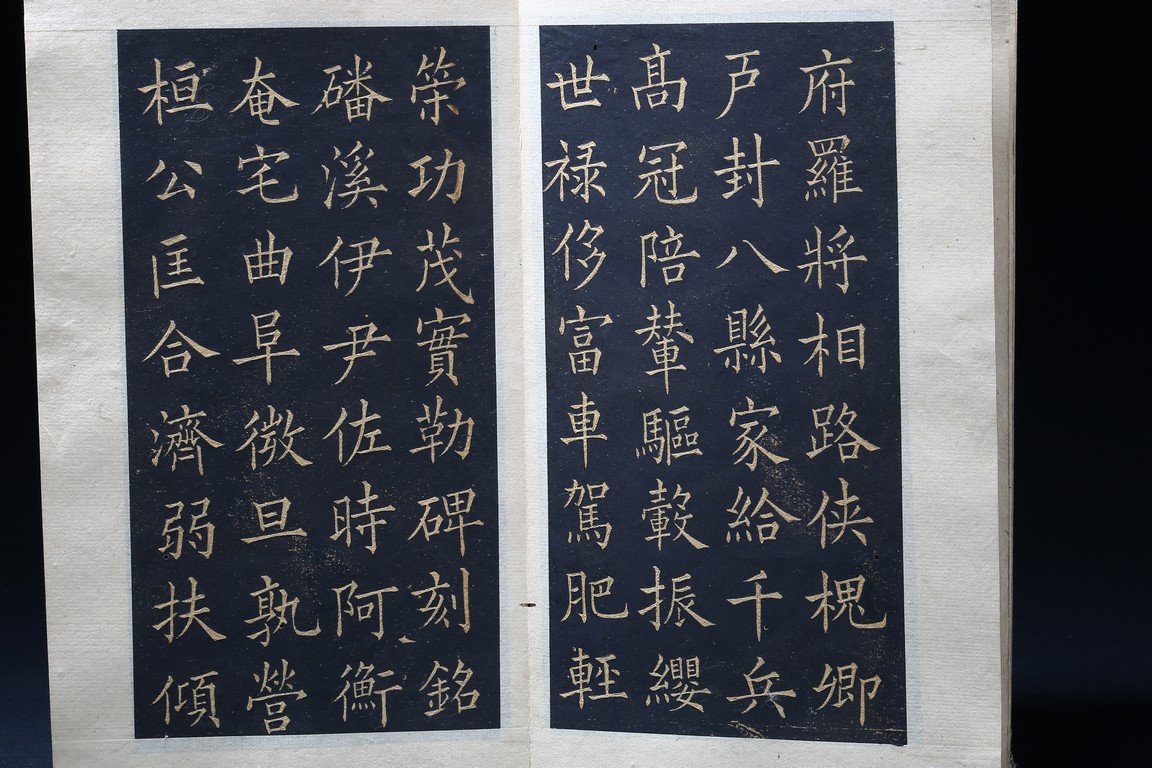 府羅將相路俠槐卿
戶封八縣家給千兵
高冠陪輦驅轂振纓
世禄侈富車駕肥輕
策功茂實勒碑刻銘
磻溪伊尹佐時阿衡
奄宅曲阜微旦孰營
桓公匡合濟弱扶傾